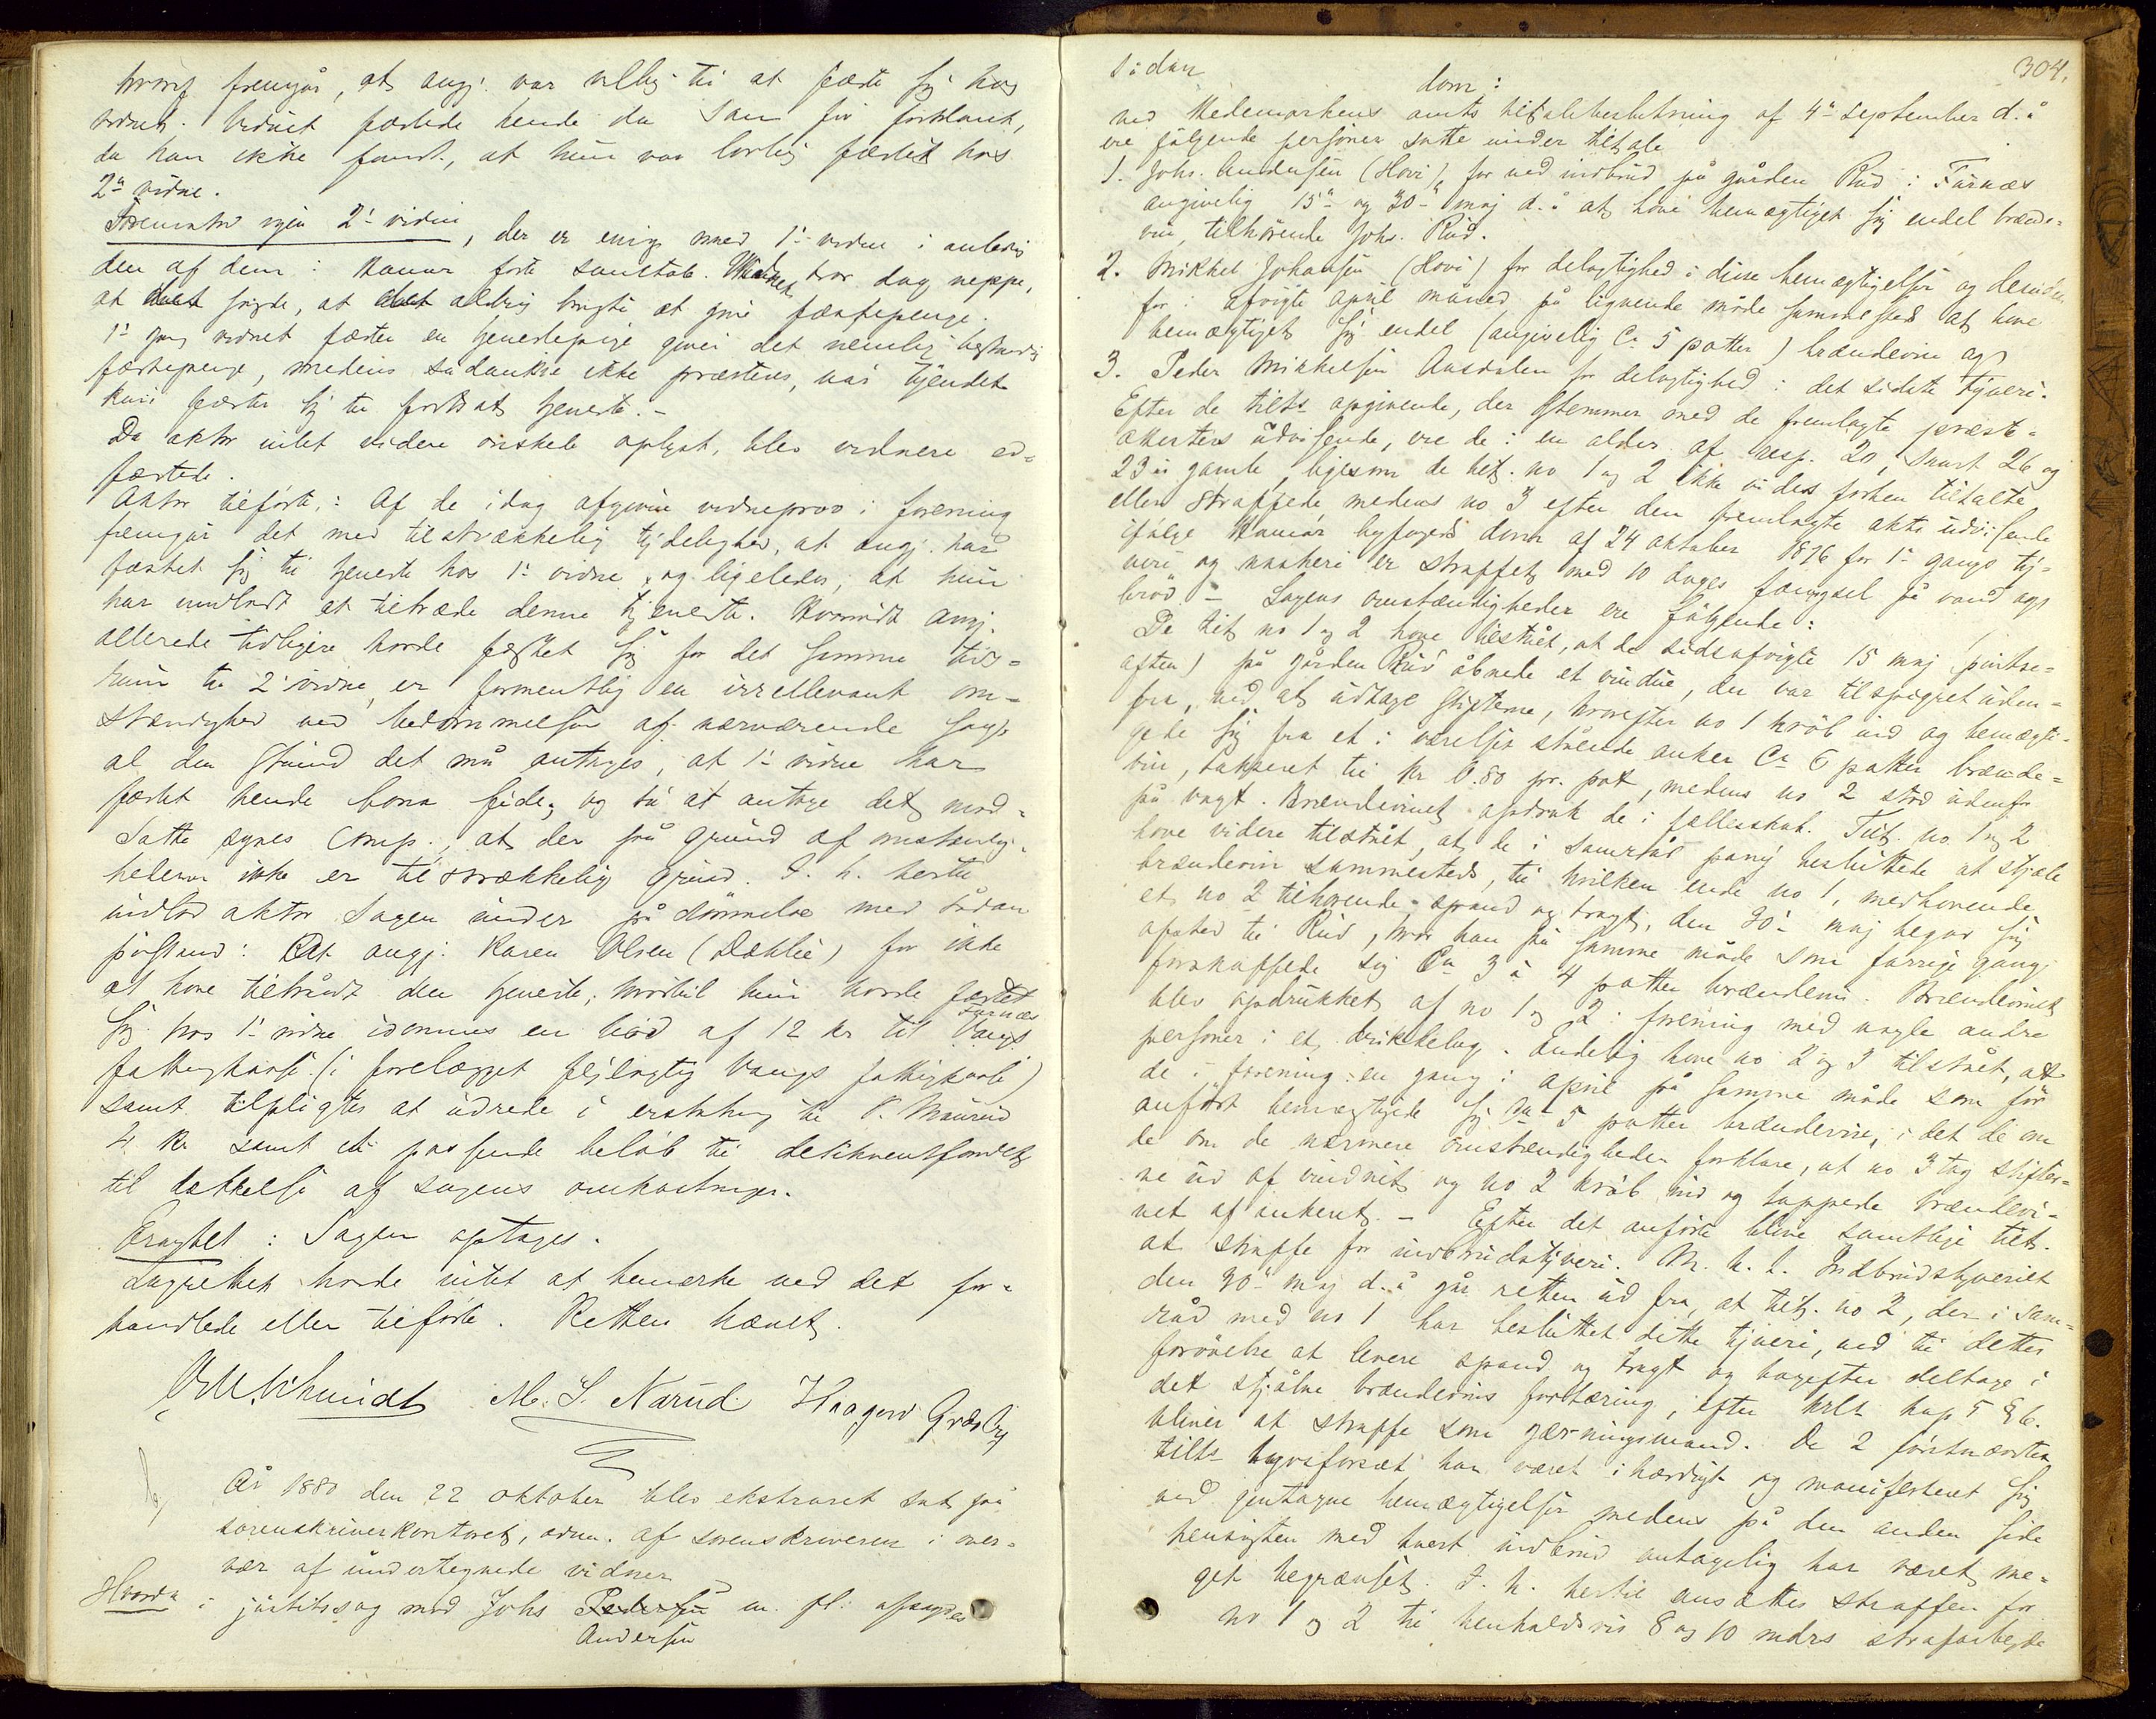 hvoraf fremgår, at angj. var villig til at fæste sig hos
vidnet. Vidnet fæstede hende da som før forklaret,
da han ikke fandt, at hun var lovlig fæstet hos
2det vidne.
Foreviste igjen 2det vidne, der er enig med 1ste vidne i anledning
den af dem: Hamar forte samtale. Vidnet tror dog neppe,
at sagde, at aldrig brugte at give fæstepenge.
1ste gang vidnet fæster en tjenestepige giver det nemlig bestandig
fæstepenge, medens sådanne ikke præsteres, når tjendet
kun fæster sig til fortsat tjeneste. -
Da aktor intet videre ønskede oplyst, blev vidnerne ed-
fæstede.
Aktor tilførte: Af de idag afgivne vidneprov i forening
fremgår det med tilstrækkelig tydelighed, at angj. har
fæstet sig til tjeneste hos 1ste vidne, og ligeledes, at hun
har undladt at tiltræde denne tjeneste. Hvorvidt angj.
allerede tidligere havde fæstet sig for det samme tids-
rum til 2det vidne, er formentlig en irrellevant om-
stændighed ved bedømmelsen af nærværende sag,
al den stund det må antages, at 1ste vidne har
fæstet hende bona fide; og til at antage det mod-
satte synes Comp., at der på grund af omstændig-
hederne ikke er tilstrækkelig grund. I. h. hertil
indlod aktor sagen under på dømmelse med sådan
påstand: At angj. Karen Olsen (Dæhlie) for ikke
at have tiltrådt den tjeneste, hvortil hun havde fæstet
sig hos 1ste vidne idømmes en bod af 12 kr til Furnæs Vangs
fattigkasse (i forelægget fejlagtig Vangs fattigkasse)
samt tilpligtes at udrede i erstatning til P. Maurud
4 kr samt et passende beløb til delikventfondet
til dækkelse af sagens omkostninger.
Eragtet: Sagen optages.
Lagrettet havde intet at bemærke ved det for-
handlede eller tilførte. Retten hævet.
Schmidt M. S. Narud Haagen Græsby
År 1880 den 22 oktober blev ekstraret sat på
sorenskriverkontoret, adm. af sorenskriveren i over-
vær af undertegnede vidner
Hvorda i justitssag mod Johs Pedersen m. fl. afsagdes
Andersen
304.
sidan
dom:
Ved Hedemarkens amts tiltalebeslutning af 4de september d. å
ere følgende personer satte under tiltale
1. Johs. Andersen (Hovi), for ved indbrud på gården Rud i Furnæs
angivelig 15de og 30te maj d. å at have bemægtiget sig endel brænde-
vin, tilhørende Johs. Rud.
2. Mikkel Johansen (Hovi) for delagtighed i disse bemægtigelser og desuden
for i afvigte april måned på lignende måde sammesteds at have
bemægtiget sig endel (angivelig Ca 5 potter) brændevin og
3. Peder Mikkelsen Aasdalen for delagtighed i det sidste tyveri.
Efter de tilts opgivende, der stemmer med de fremlagte præste-
attesters udvisende, ere de i en alder af resp. 20, snart 26 og
23 år gamle, ligesom de tilt. no 1 og 2 ikke vides forhen tiltalte
eller straffede medens no 3 efter den fremlagte akts udvisende
ifølge Hamar byfogeds dom af 24 oktober 1876 for 1ste gangs ty-
veri og naskeri er straffet med 10 dages fængsel på vand og
brød. - Sagens omstændigheder ere følgende:
De tilt no 1 og 2 have tilstået, at de sidstafvigte 15 maj (pintse-
aften) på gården Rud åbnede et vindue, der var tilspigret uden-
fra, ved at udtage stifterne, hvorefter no 1 krøb ind og bemægti-
gede sig fra et i værelset stående anker Ca 6 potter brænde-
vin, takseret til kr 0.80 pr. pot, medens no 2 stod udenfor
på vagt. Brændevinet opdrak de i fællesskab. Tilt. no 1 og 2
have videre tilstået, at de i samråd pany besluttede at stjæle
brændevin sammesteds, til hvilken ende no 1, medhavende
et no 2 tilhørende spand og tragt, den 30te maj begav sig
afsted til Rud, hvor han på samme måde som forrige gang
forskaffede sig Ca 3 à 4 potter brændevin. Brændevinet
blev opdrukket af no 1 og 2 i forening med nogle andre
personer i et drikkelag. Endelig have no 2 og 3 tilstået, at
de i forening en gang i april på samme måde som før
anført bemægtigede sig Ca 5 potter brændevin, i det de om
de om de nærmere omstændigheder forklare, at no 3 tog stifter-
ne ud af vinduet og no 2 krøb ind og tappede brændevi-
net af ankeret. - Efter det anførte blive samtlige tilt.
at straffe for indbrudstyveri. M. h. t. Indbrudstyveriet
den 30te maj d. å går retten ud fra, at tilt. no 2, der i sam-
råd med no 1 har besluttet dette tyveri, ved til dettes
forøvelse at levere spand og tragt og bagefter deltage i
det stjålne brændevins fortæring, efter krlt kap 5 § 6.
bliver at straffe som gjerningsmand. De 2 førstnævnte
tilts tyvsforsæt har været ihærdigt og manifesteret sig
ved gjentagne bemægtigelser medens på den anden side
hensigten med hvert indbrud antagelig har været me-
get begrænset. I. h. hertil ansættes straffen for
no 1 og 2 til henholdsvis 8 og 10 mdrs strafarbejde